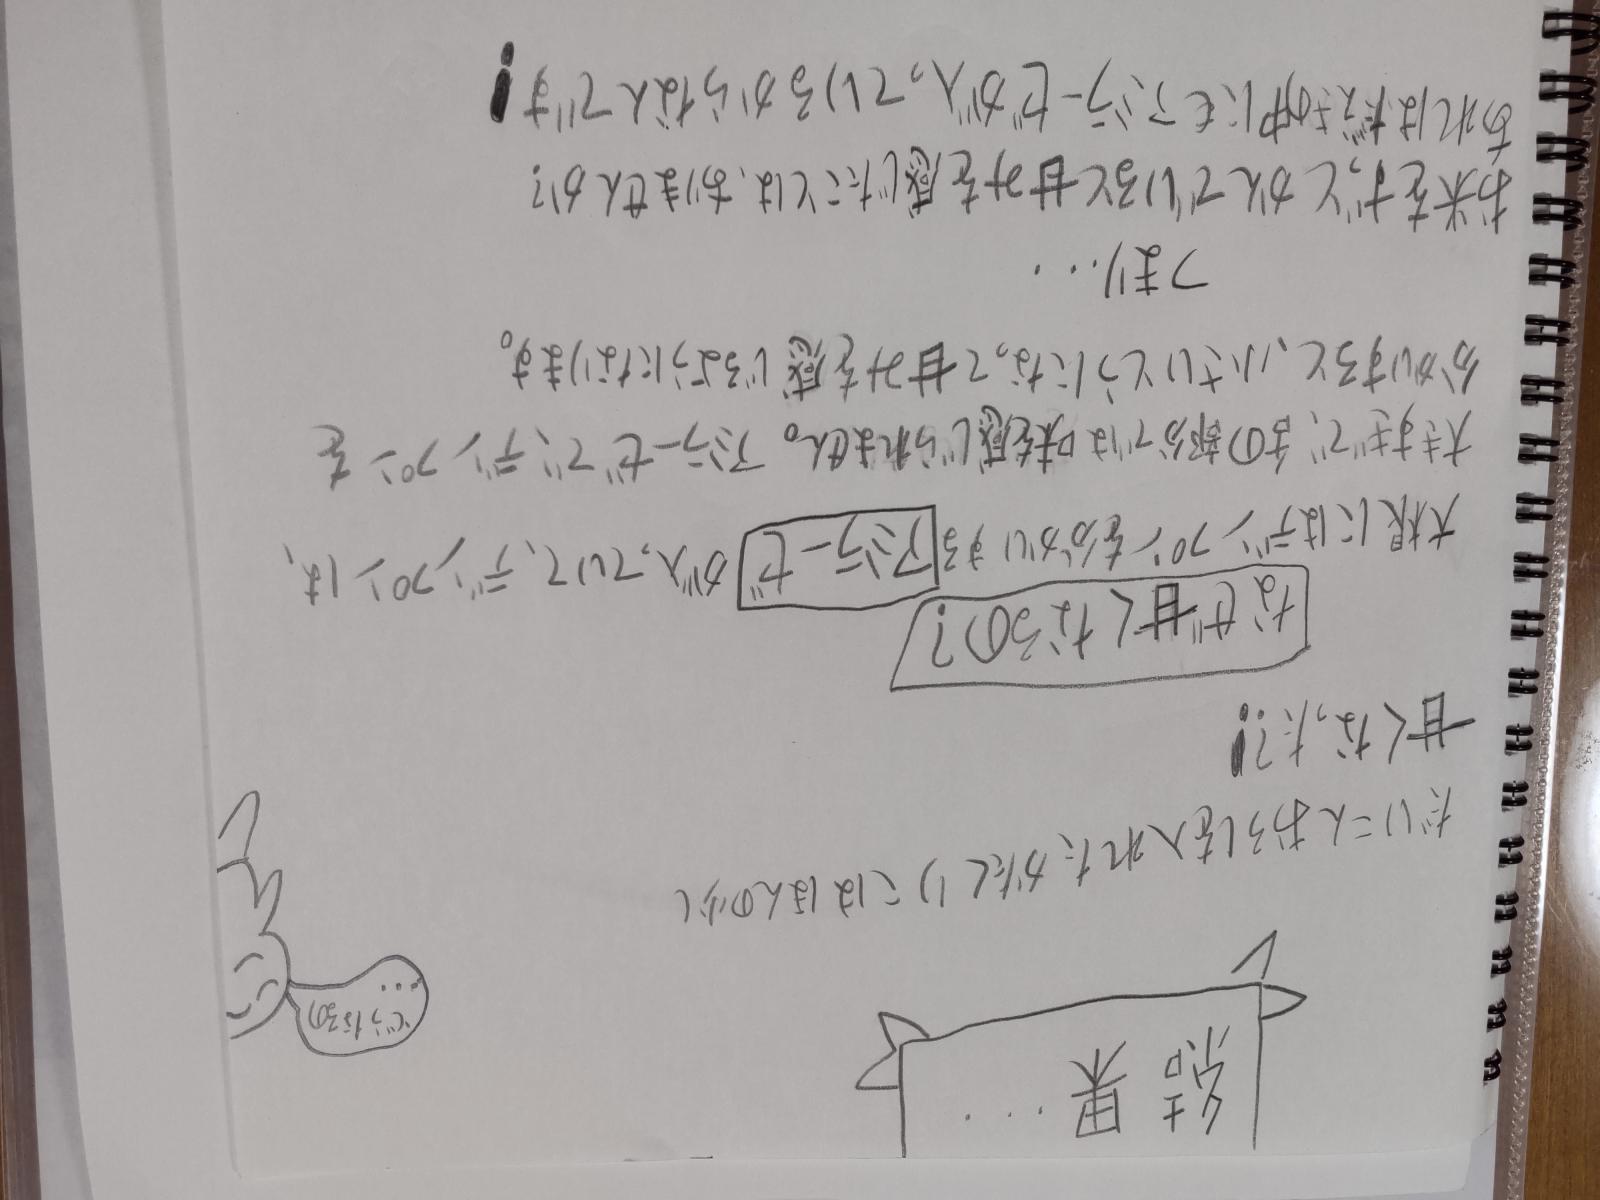 結果...
どうなるの
...
だいこんおろしを入れたかたくりこはほんの少し
甘くなった?!
なぜ甘くなるの?
大根にはデンプンをぶんかいするアミラーゼが入っていて、デンプンは、
大きすぎて、舌の部分では味を感じられません。アミラーゼで、デンプンを
ぶんかいすると、小さいとうになって甘みを感じるようになります。
つまり...
お米をずっとかんでいると甘みを感じたことは、ありませんか?
あれはだえき中にもアミラーゼが入っているからなんです!